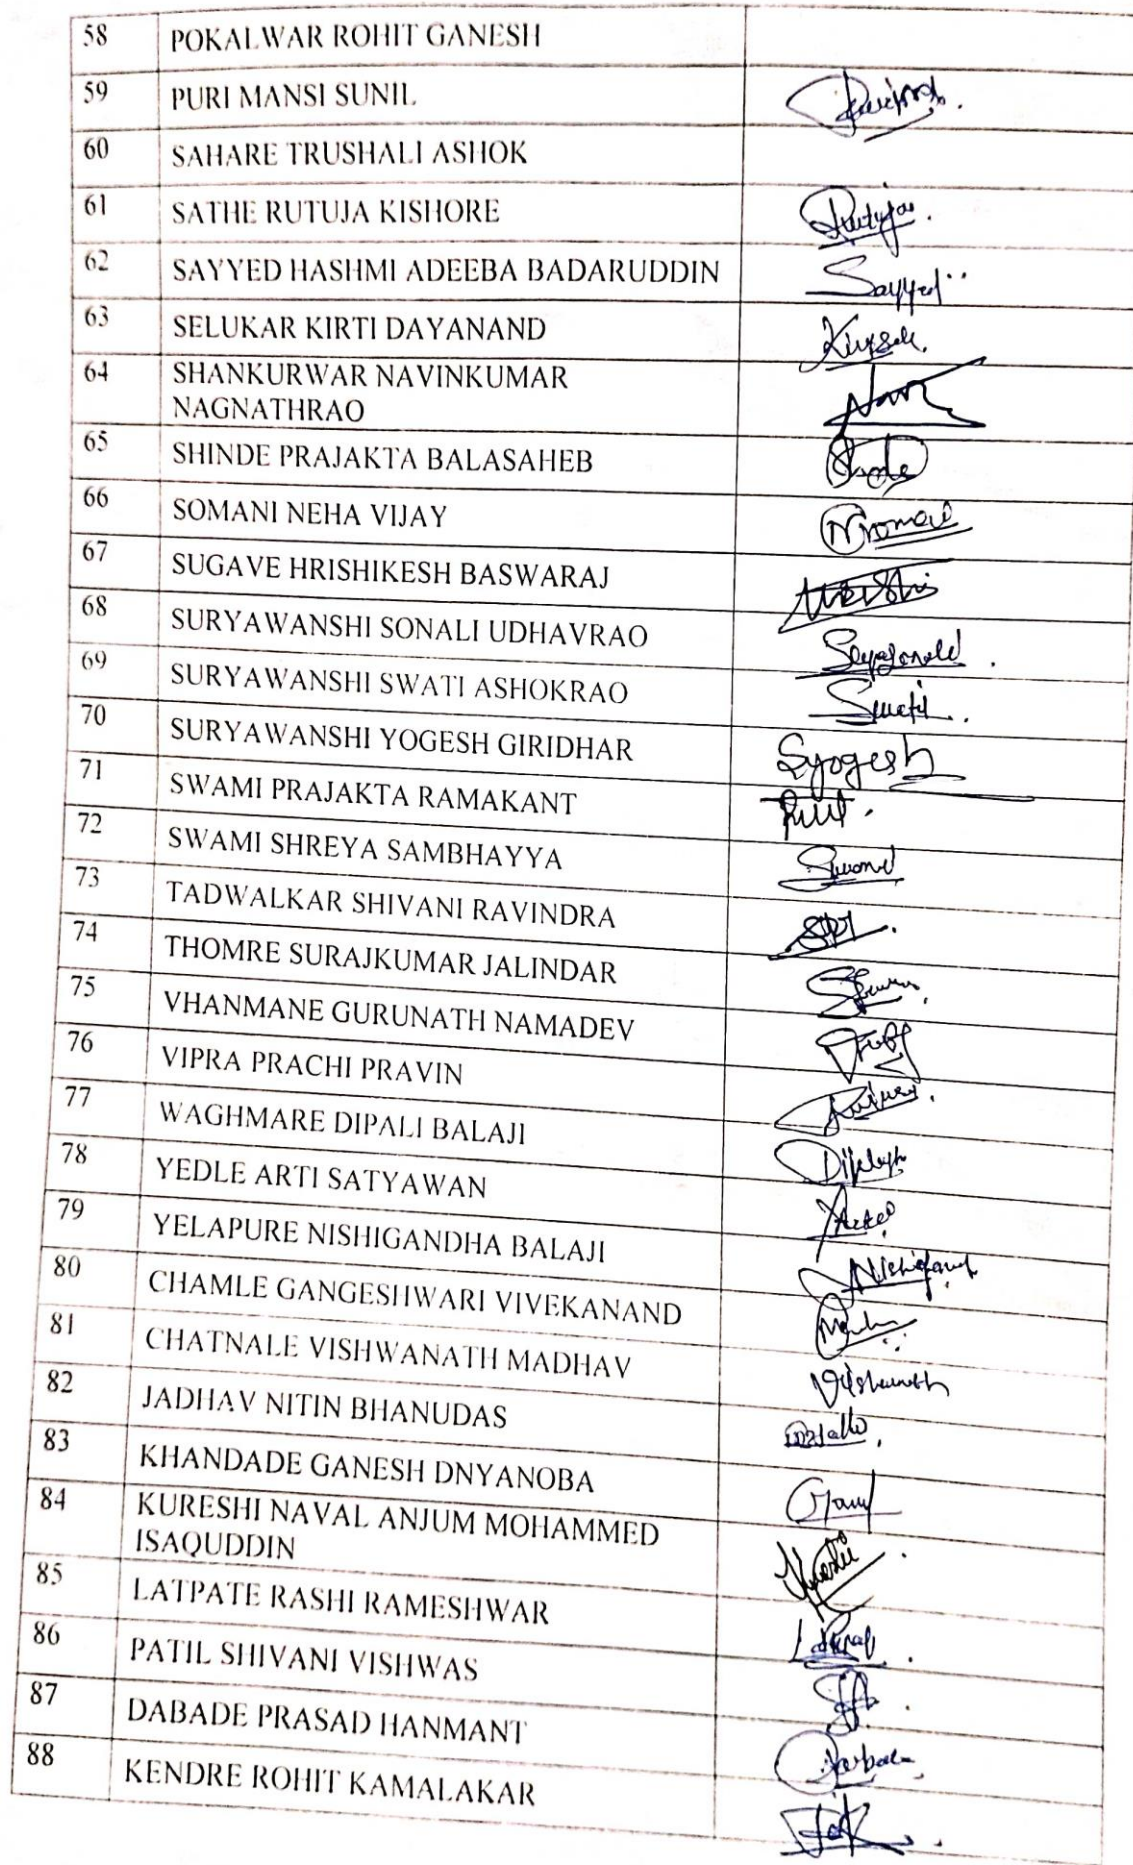 58 POKALWAR ROHIT GANESH
59 PURI MANSI SUNIL
60 SAHARE TRUSHALI ASHOK
61 SATHE RUTUJA KISHORE Rutuja.
62 SAYYED HASHMI ADEEBA BADARUDDIN Sayyed
63 SELUKAR KIRTI DAYANAND
64 SHANKURWAR NAVINKUMAR
NAGNATHRAO
65 SHINDE PRAJAKTA BALASAHEB
66 SOMANI NEHA VIJAY
67 SUGAVE HRISHIKESH BASWARAJ
68 SURYAWANSHI SONALI UDHAVRAO
69 SURYAWANSHI SWATI ASHOKRAO Swati
70 SURYAWANSHI YOGESH GIRIDHAR Syogesh
71 SWAMI PRAJAKTA RAMAKANT
72 SWAMI SHREYA SAMBHAYYA
73 TADWALKAR SHIVANI RAVINDRA
74 THOMRE SURAJKUMAR JALINDAR
75 VHANMANE GURUNATH NAMADEV
76 VIPRA PRACHI PRAVIN
77 WAGHMARE DIPALI BALAJI
78 YEDLE ARTI SATYAWAN
79 YELAPURE NISHIGANDHA BALAJI
80 CHAMLE GANGESHWARI VIVEKANAND
81 CHATNALE VISHWANATH MADHAV
82 JADHAV NITIN BHANUDAS
83 KHANDADE GANESH DNYANOBA
84 KURESHI NAVAL ANJUM MOHAMMED
ISAQUDDIN
85 LATPATE RASHI RAMESHWAR
86 PATIL SHIVANI VISHWAS
87 DABADE PRASAD HANMANT
88 KENDRE ROHIT KAMALAKAR